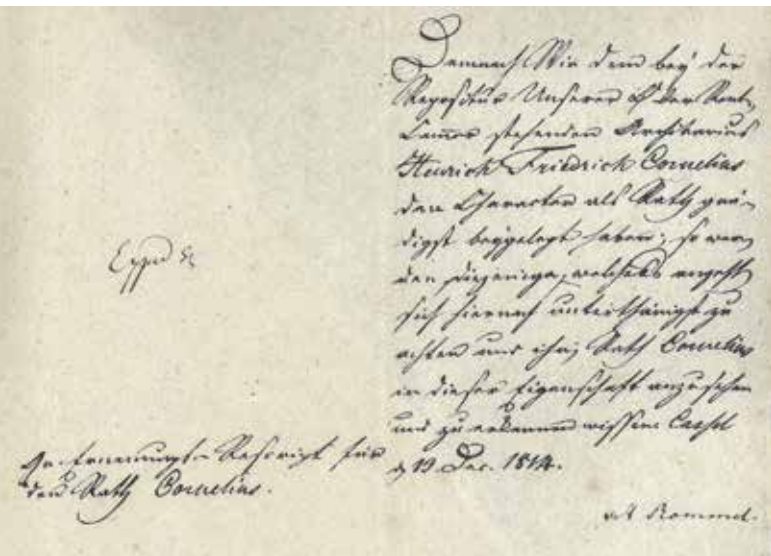 Demnach Wir dem bey der
Repositur Unserer Ober Rent-
Cammer stehenden Archivarius
Henrich Friedrich Cornelius
den Character als Rath gnä-
digst beygelegt haben; so wer-
den diejenige, welche es angeht
sich hiernach unterthänigst zu
achten und ihn, Rath Cornelius
in dieser Eigenschaft anzusehen
und zu erkennen wissen. Cassel
19. Dec. 1814.
vt Rommel.
Expd
Ernennungs-Rescript für
den Rath Cornelius.